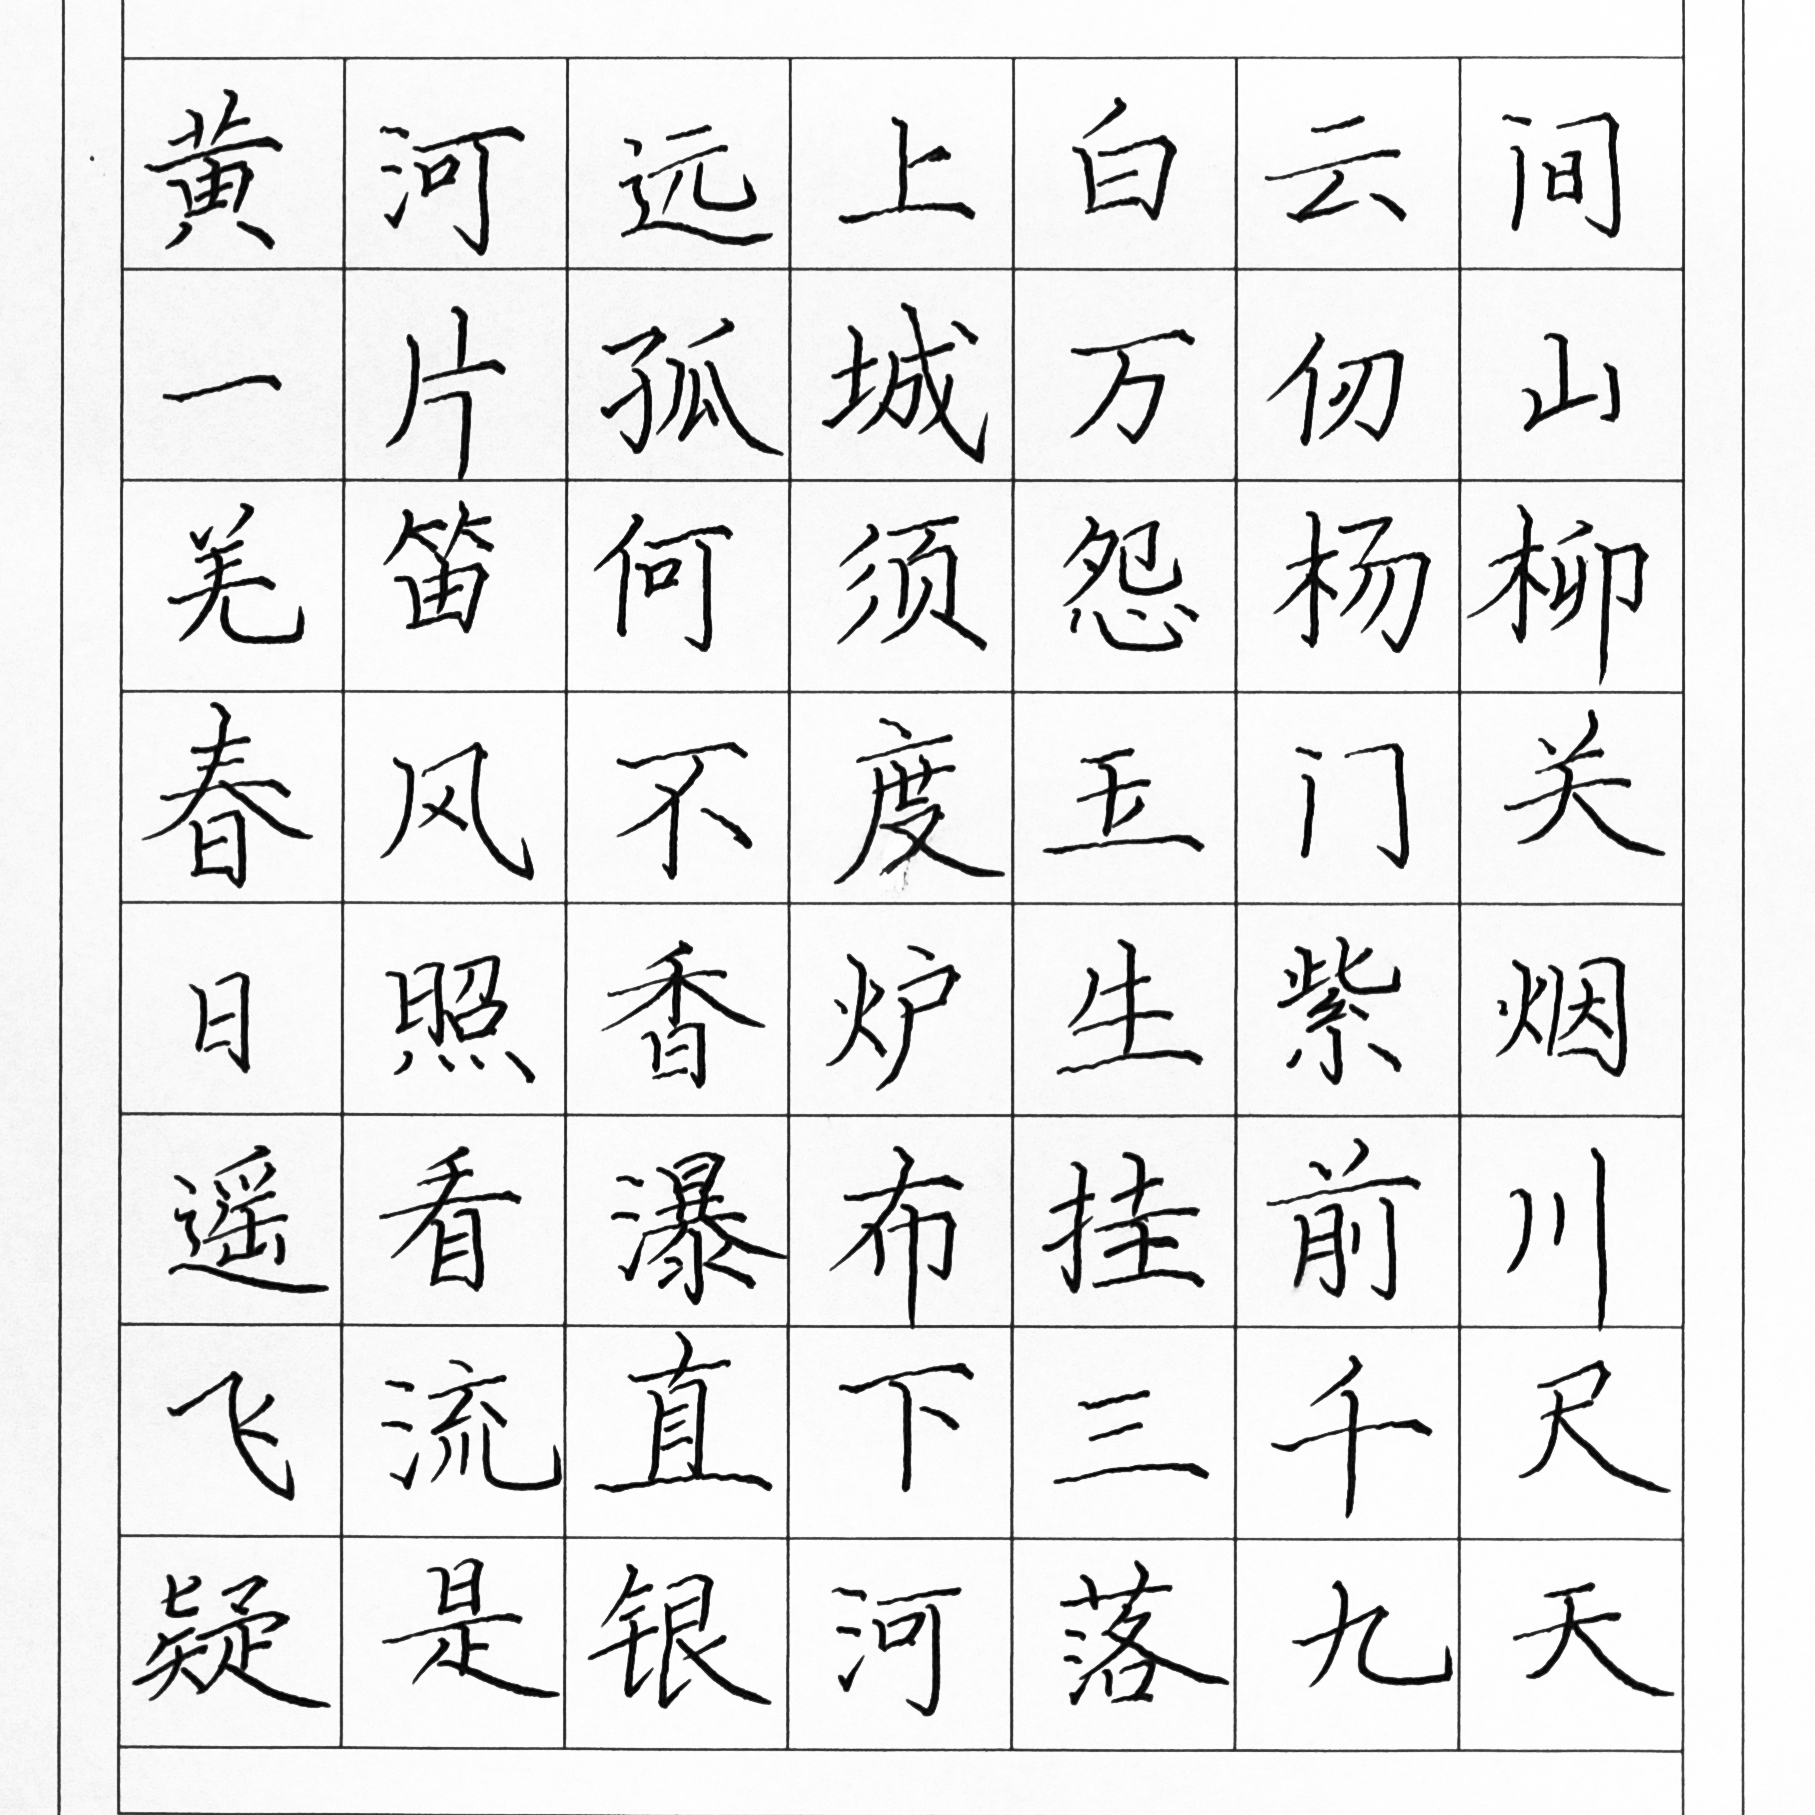 黄河远上白云间
一片孤城万仞山
羌笛何须怨杨柳
春风不度玉门关
日照香炉生紫烟
遥看瀑布挂前川
飞流直下三千尺
疑是银河落九天